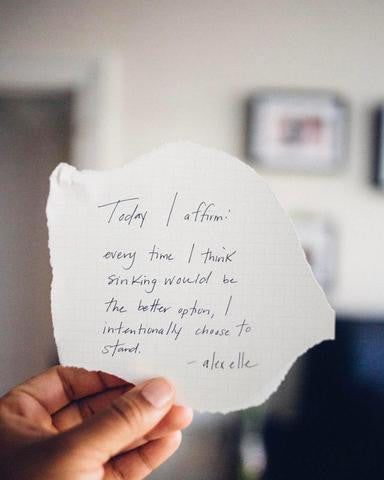 Today I affirm:
every time I think
sinking would be
the better option, I
intentionally choose to
stand.
- alex elle